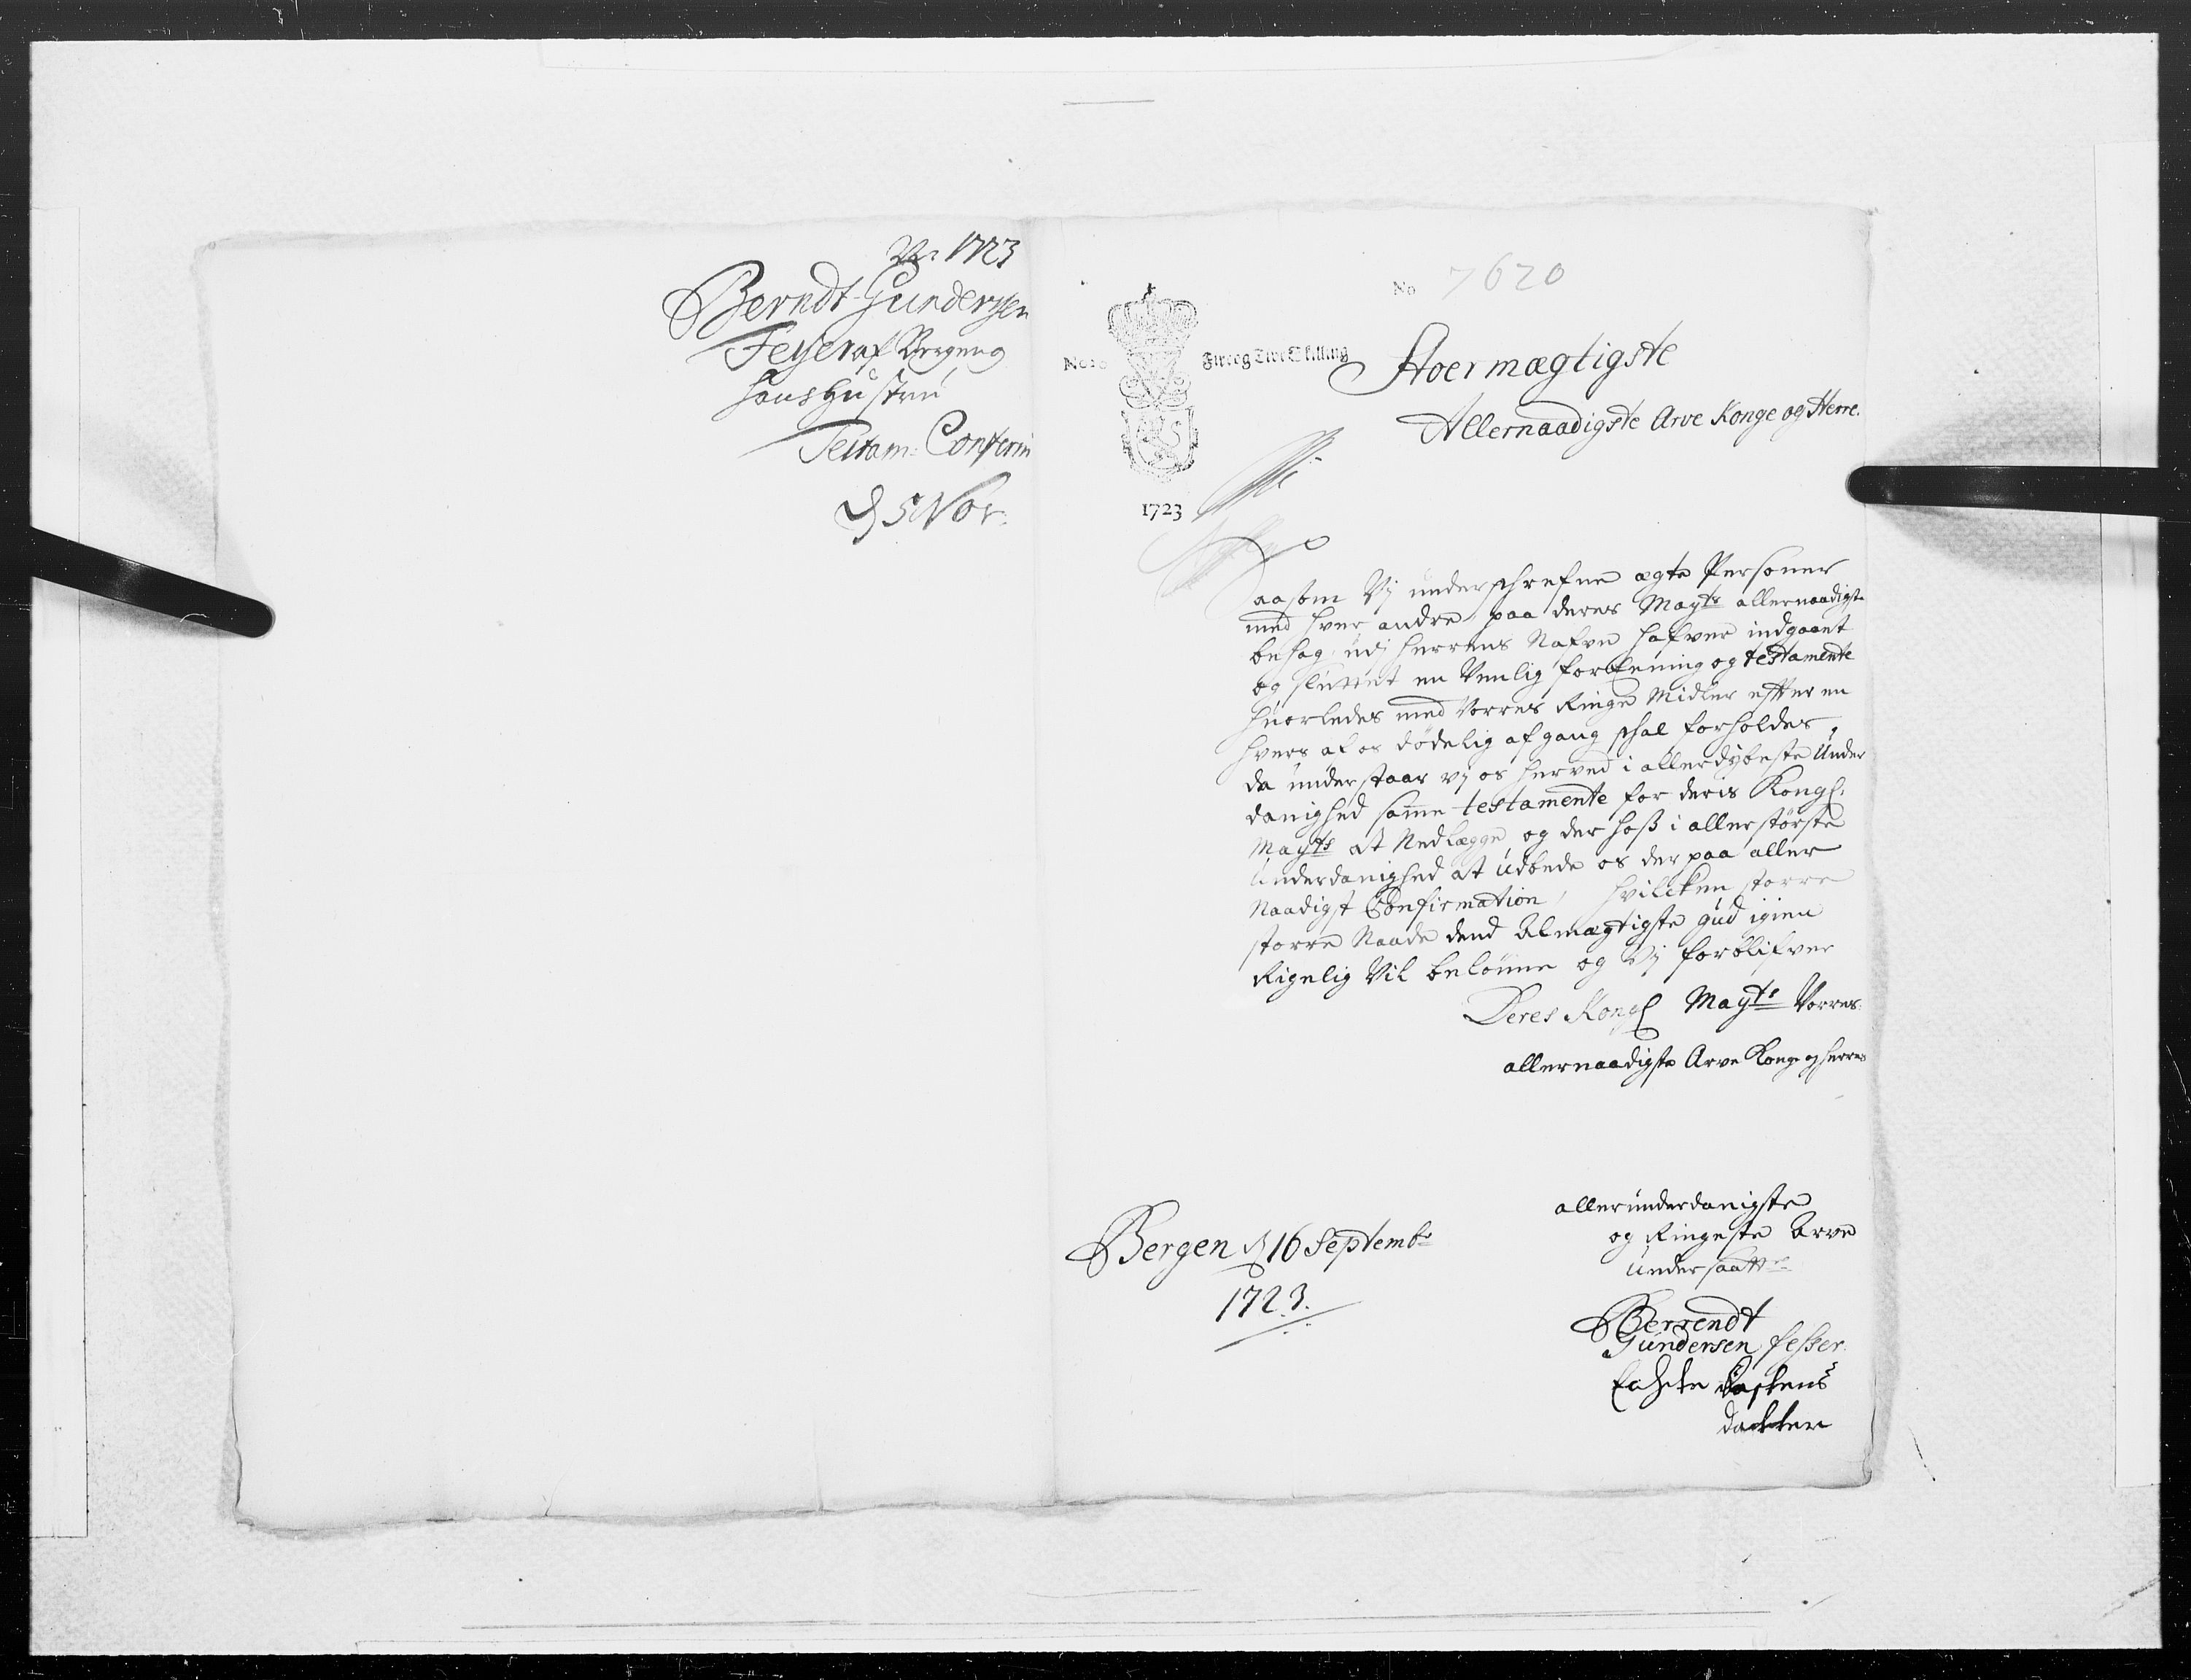 1723
Berndt Gundersen
Feyer af Bergens
Hans Hustru
Testam: Conferm
d 5 Nov:
No 7620
Fire og Tive Skilling
1723
Stoermægtigste
Allernaadigste Arve Konge og Herre.
Saasom Vj underschrefne ægte Personer
med hver andre paa deres Mayts allernaadigste
behag, udj Herrens Nafvn hafver indgaaet
og sluttet en Venlig foreening og testamente
huorledes med Vorres Ringe Midler effter en
hvers af os dödelig afgang schal forholdes,
da understaar vj os herved i allerdybeste Under
danighed samme testamente for deris Kongl:
Mayts at Nedlægge, og der hoß i allerstörste
Underdanighed at udbede os der paa aller
Naadigst Confirmation, hvilcken storre
storre Naade dend Almægtigste gud igien
Rigelig Vil belönne og Vj forblifver
Deres Kongl Mayts Vorres
allernaadigste Arve Konge og Herres
allerunderdanigste
og Ringeste Arve
Undersaatter
Bergen d 16 Septembr
1723.
Berrendt
Gundersen fesser
datter